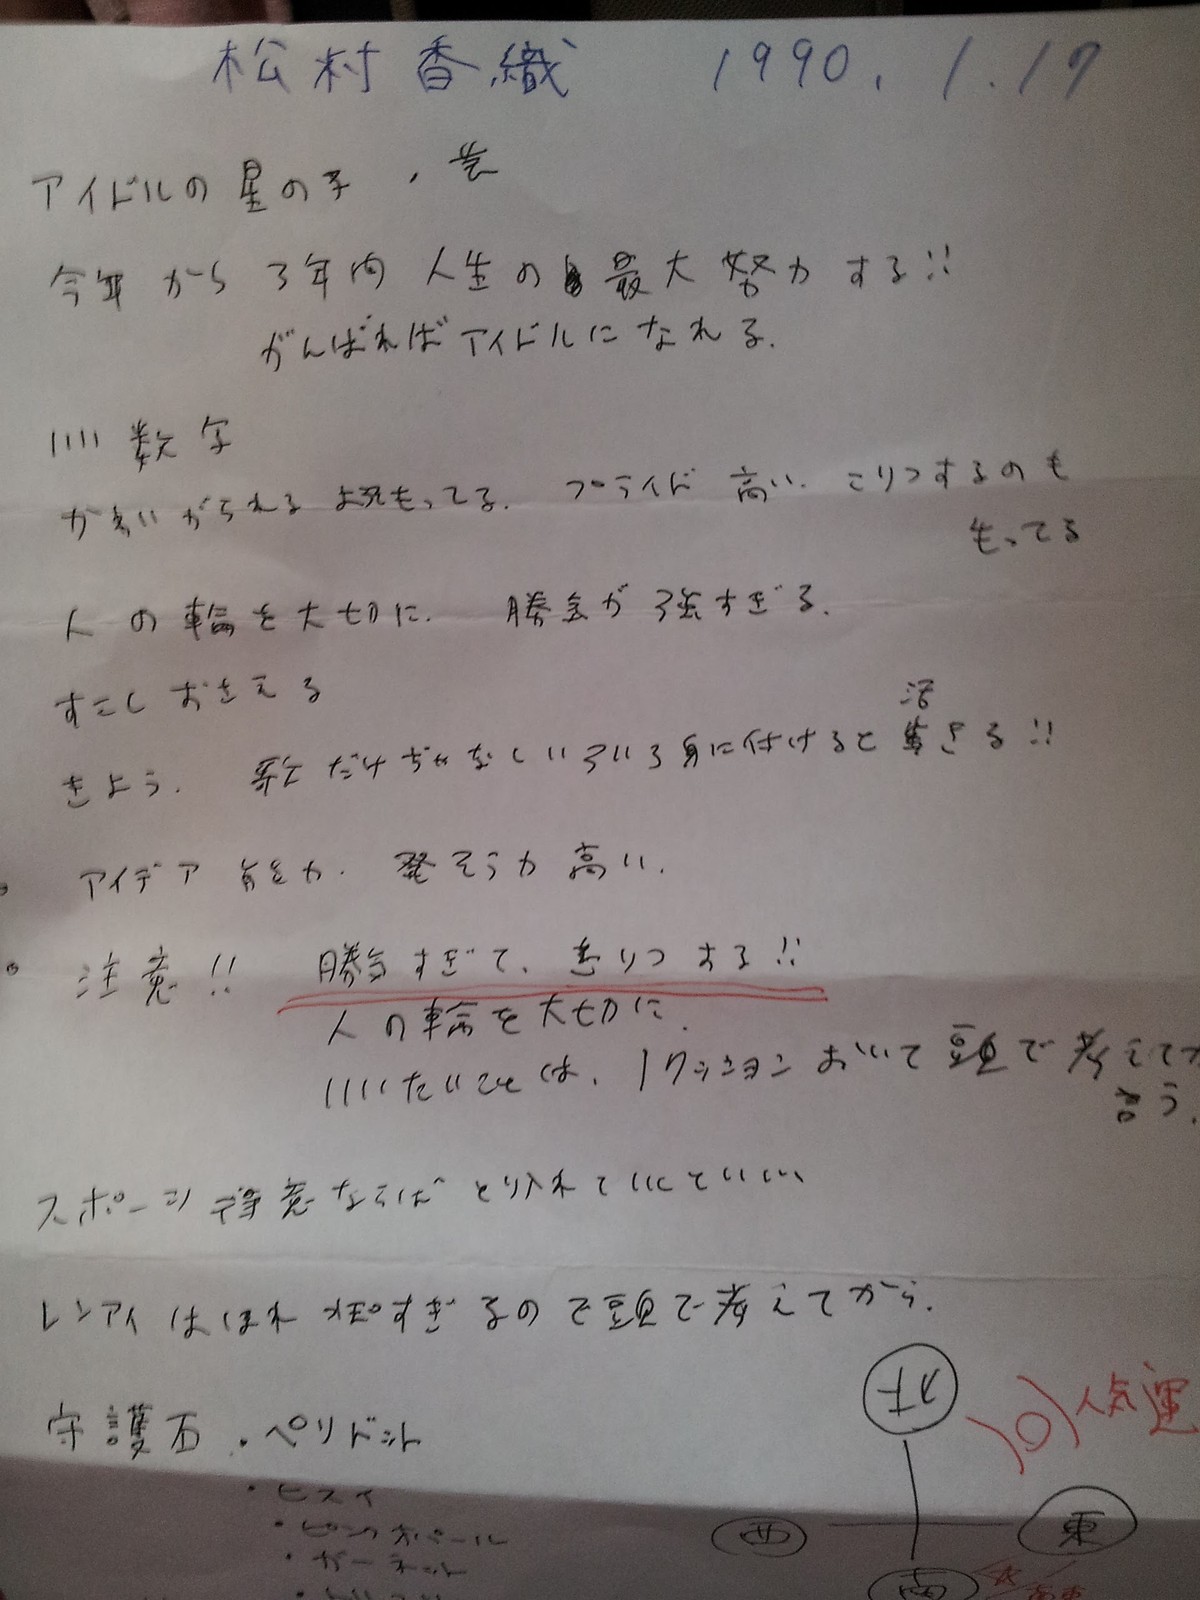 松村香織 1990.1.17
アイドルの星の子、芸
今年から3年内人生の最大努力する!!
がんばればアイドルになれる.
数字
かわいがられるよそもってる.プライド高い.こりつするのも
もってる
人の輪を大切に.勝気が強すぎる.
すこしおさえる
きよう.歌だけぢゃなしいろいろ身に付けると活きる!!
・アイデア能力.発そう力高い.
・注意!! 勝気すぎて、こりつする!!
人の輪を大切に.
いいたいことは、1クッションおいて頭で考えてか
言う.
スポーツ得意ならばとり入れていい
レンアイはほれすぎるので頭で考えてから.
守護石・ペリドット
・ヒスイ
・ピンクオパール
・ガーネット
北
人気運
西 東
南